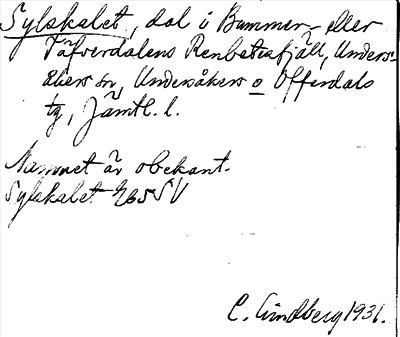 Sylskalet, dal i Bummer- eller
Täfverdalens Renbetesfjäll, Unders-
åkers sn, Undersåkers o Offerdals
tg, Jämtl. l.
Namnet är obekant.
Sylskalet
C. Lindberg 1931.